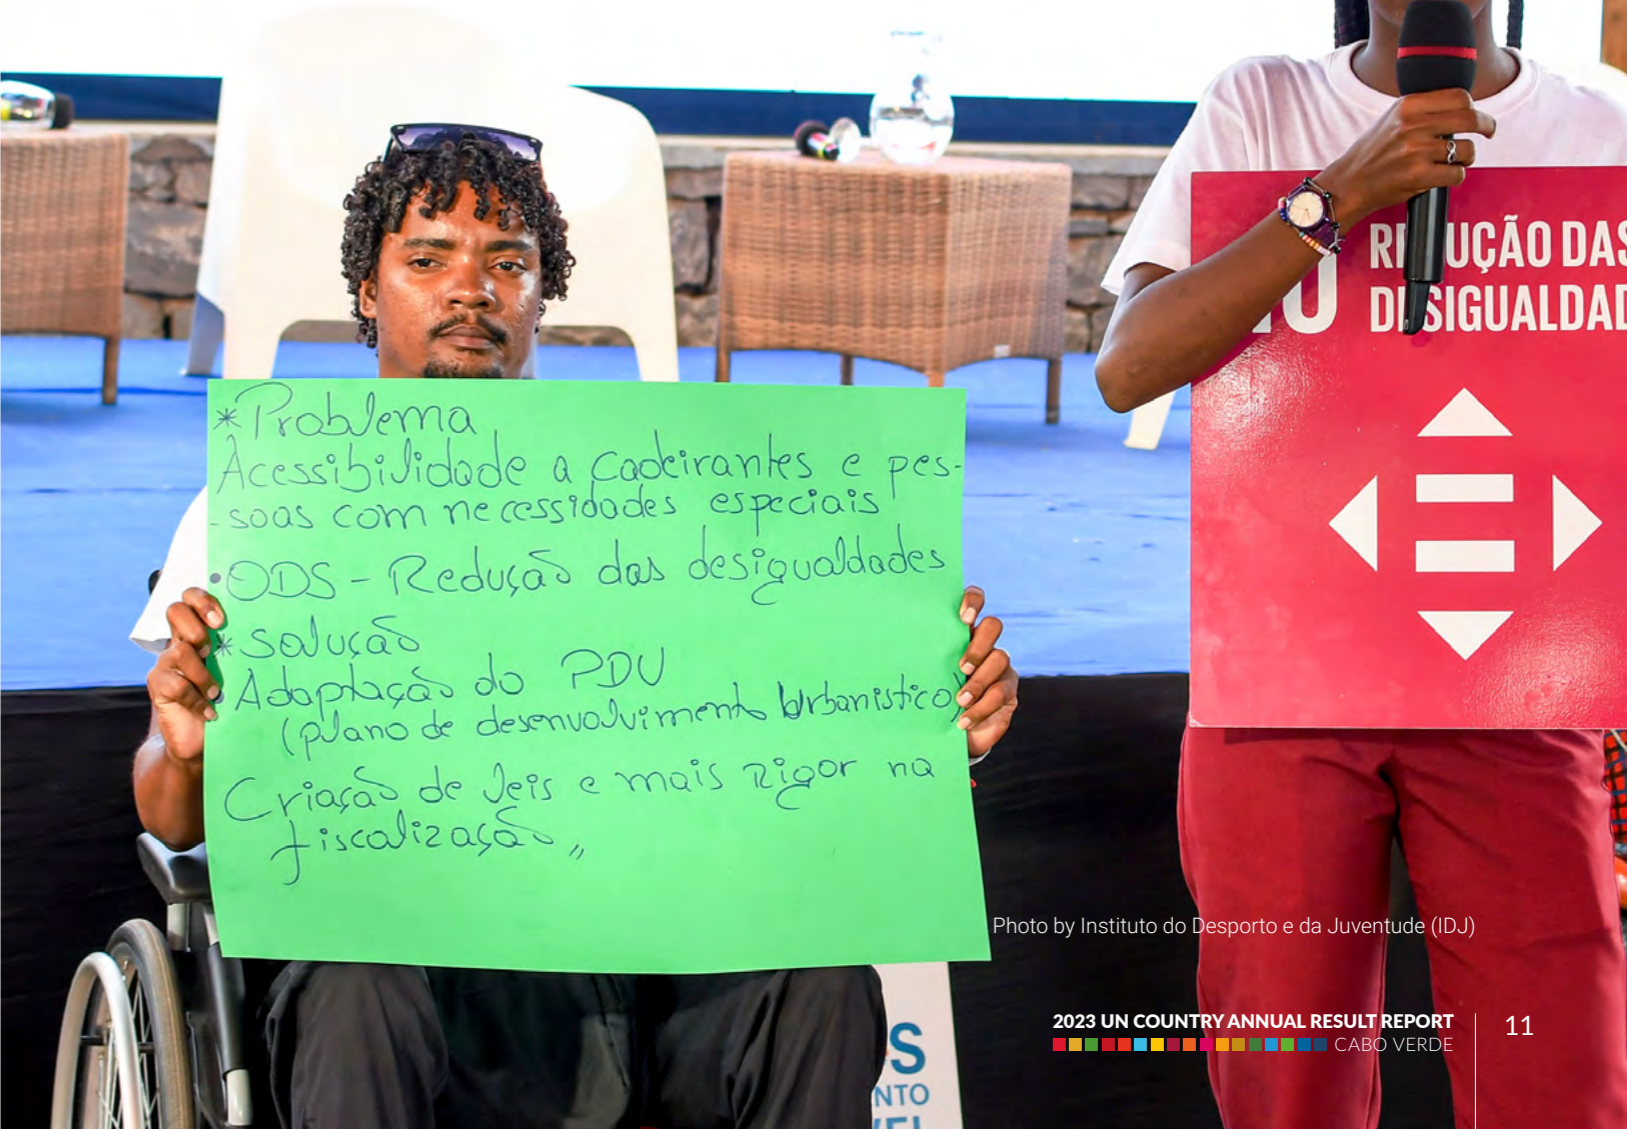 *Problema
Acessibilidade a cadeirantes e pes-
-soas com necessidades especiais
•ODS - Redução das desigualdades
*Solução
•Adaptação do PDU
(plano de desenvolvimento Urbanistico)
Criação de leis e mais rigor na
fiscalização,,
10
REDUÇÃO DAS
DESIGUALDAD
Photo by Instituto do Desporto e da Juventude (IDJ)
S
NTO
VEL
2023 UN COUNTRY ANNUAL RESULT REPORT
CABO VERDE
11